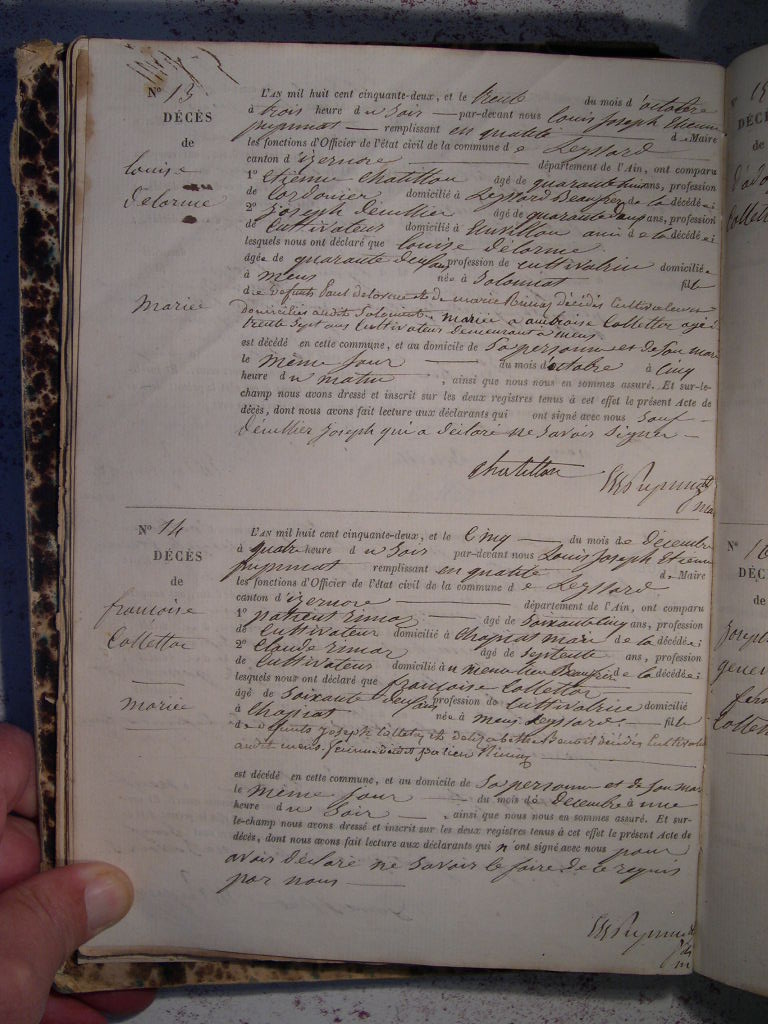 N° 13
DÉCÈS
de
Louise
Delorme
Mariée
L'AN mil huit cent cinquante-deux, et le trente du mois d'octobre
à trois heure du Soir par-devant nous Louis Joseph Etienne
remplissant en qualité de Maire
les fonctions d'Officier de l'état civil de la commune de Leyssard
canton d'izernore département de l'Ain, ont comparu
1° Etienne Chatillon âgé de quarante ans, profession
de Cordonier domicilié à Leyssard Beaufrere de la décédée
2° Joseph âgé de quarante ans, profession
de Cultivateur domicilié à ami de la décédée
lesquels nous ont déclaré que Louise Delorme
âgée de quarante deux ans, profession de Cultivatrice domiciliée
à mens née à Solomiat fille
de Defunts Paul delorme et de marie décédés Cultivateurs
domiciliés audit Solomiat mariée a ambroise Collettor agé d
trente Sept ans Cultivateur demeurant a mens
est décédé en cette commune, et au domicile de Sa personne et de Son mari
le même jour du mois d'octobre à Cinq
heure du matin, ainsi que nous nous en sommes assuré. Et sur-le-
champ nous avons dressé et inscrit sur les deux registres tenus à cet effet le présent Acte de
décès, dont nous avons fait lecture aux déclarants qui ont signé avec nous Sauf
Joseph qui a déclaré ne Savoir Signer
Chatillon
N° 14
DÉCÈS
de
françoise
Collettor
Mariée
L'AN mil huit cent cinquante-deux, et le Cinq du mois de Décembre
à quatre heure du Soir par-devant nous Louis Joseph Etienne
remplissant en qualité de Maire
les fonctions d'Officier de l'état civil de la commune de Leyssard
canton d'izernore département de l'Ain, ont comparu
1° patient âgé de Soixante Cinq ans, profession
de Cultivateur domicilié à Chapiat mari de la décédée
2° Claude âgé de Septente ans, profession
de Cultivateur domicilié à u menu lieu Beaufrère de la décédée
lesquels nous ont déclaré que françoise Collettor
âgé de Soixante deux ans profession de Cultivatrice domicilié
à Chapiat née à mens Leyssard fille
de defunts Joseph et d'elizabethe Benoit décédés Cultivateurs
audit mens, femme dudit
est décédé en cette commune, et au domicile de Sa personne et de Son mari
le même jour du mois de Décembre à une
heure du Soir, ainsi que nous nous en sommes assuré. Et sur-
le-champ nous avons dressé et inscrit sur les deux registres tenus à cet effet le présent Acte de
décès, dont nous avons fait lecture aux déclarants qui n'ont signé avec nous pour
avoir Déclaré ne Savoir le faire de ce requis
par nous